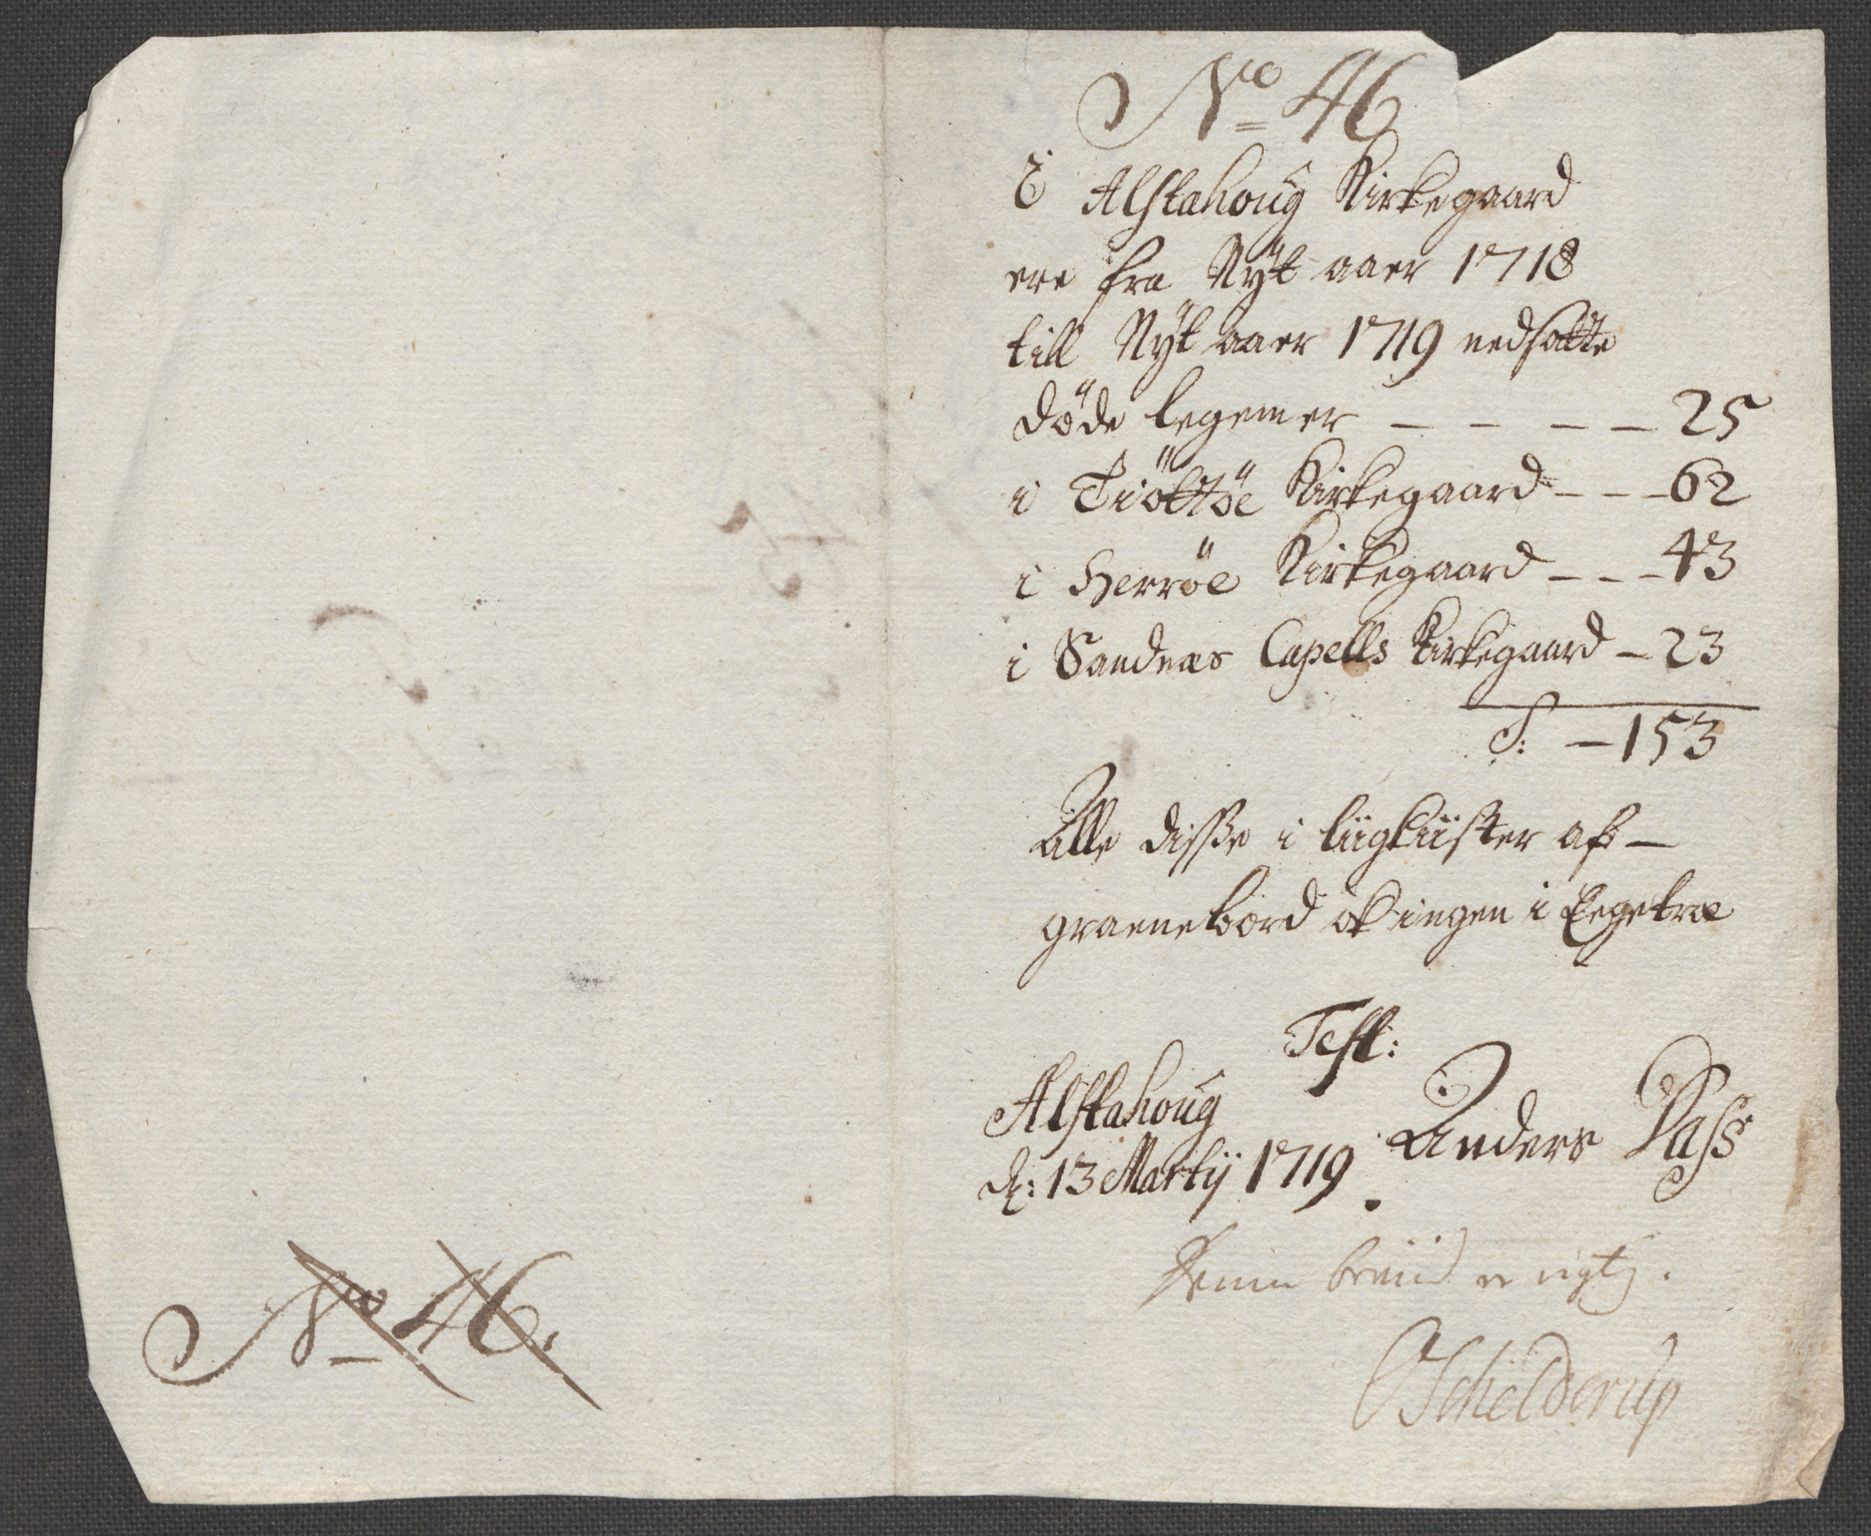 No 46.
No 46
I Alstahoug Kirkegaard
ere fra Nÿt aaer 1718
till Nÿt aaer 1719 nedsatte
døde legemer - - - - - 25
i Tiøttøe Kirkegaard - - - 62
i Herrøe Kirkegaard - - - 43
i Sandnæs Capells Kirkegaard - 23
S: - 153
Alle disse i liigkiister af -
graenebord ok ingen i Eegetræ
Test:
Alstahoug
d: 13 Martij 1719. Anders Dass
er rigtig.
OSchelderup